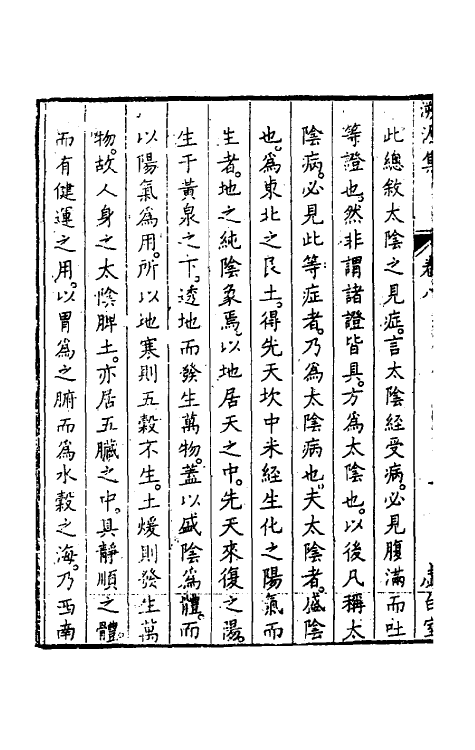 溯源集
卷八
此總敘太陰之見症。言太陰經受病。必見腹滿而吐
等證也。然非謂諸證皆具。方為太陰也。以後凡稱太
陰病。必見此等症者。乃為太陰病也。夫太陰者。盛陰
也。為東北之艮土。得先天坎中未經生化之陽氣而
生者。地之純陰象焉。以地居天之中。先天來復之陽。
生于黃泉之下。透地而發生萬物。蓋以盛陰為體。而
以陽氣為用。所以地寒則五穀不生。土煖則發生萬
物。故人身之太陰脾土。亦居五臟之中。具靜順之體。
而有健運之用。以胃為之腑而為水穀之海。乃西南